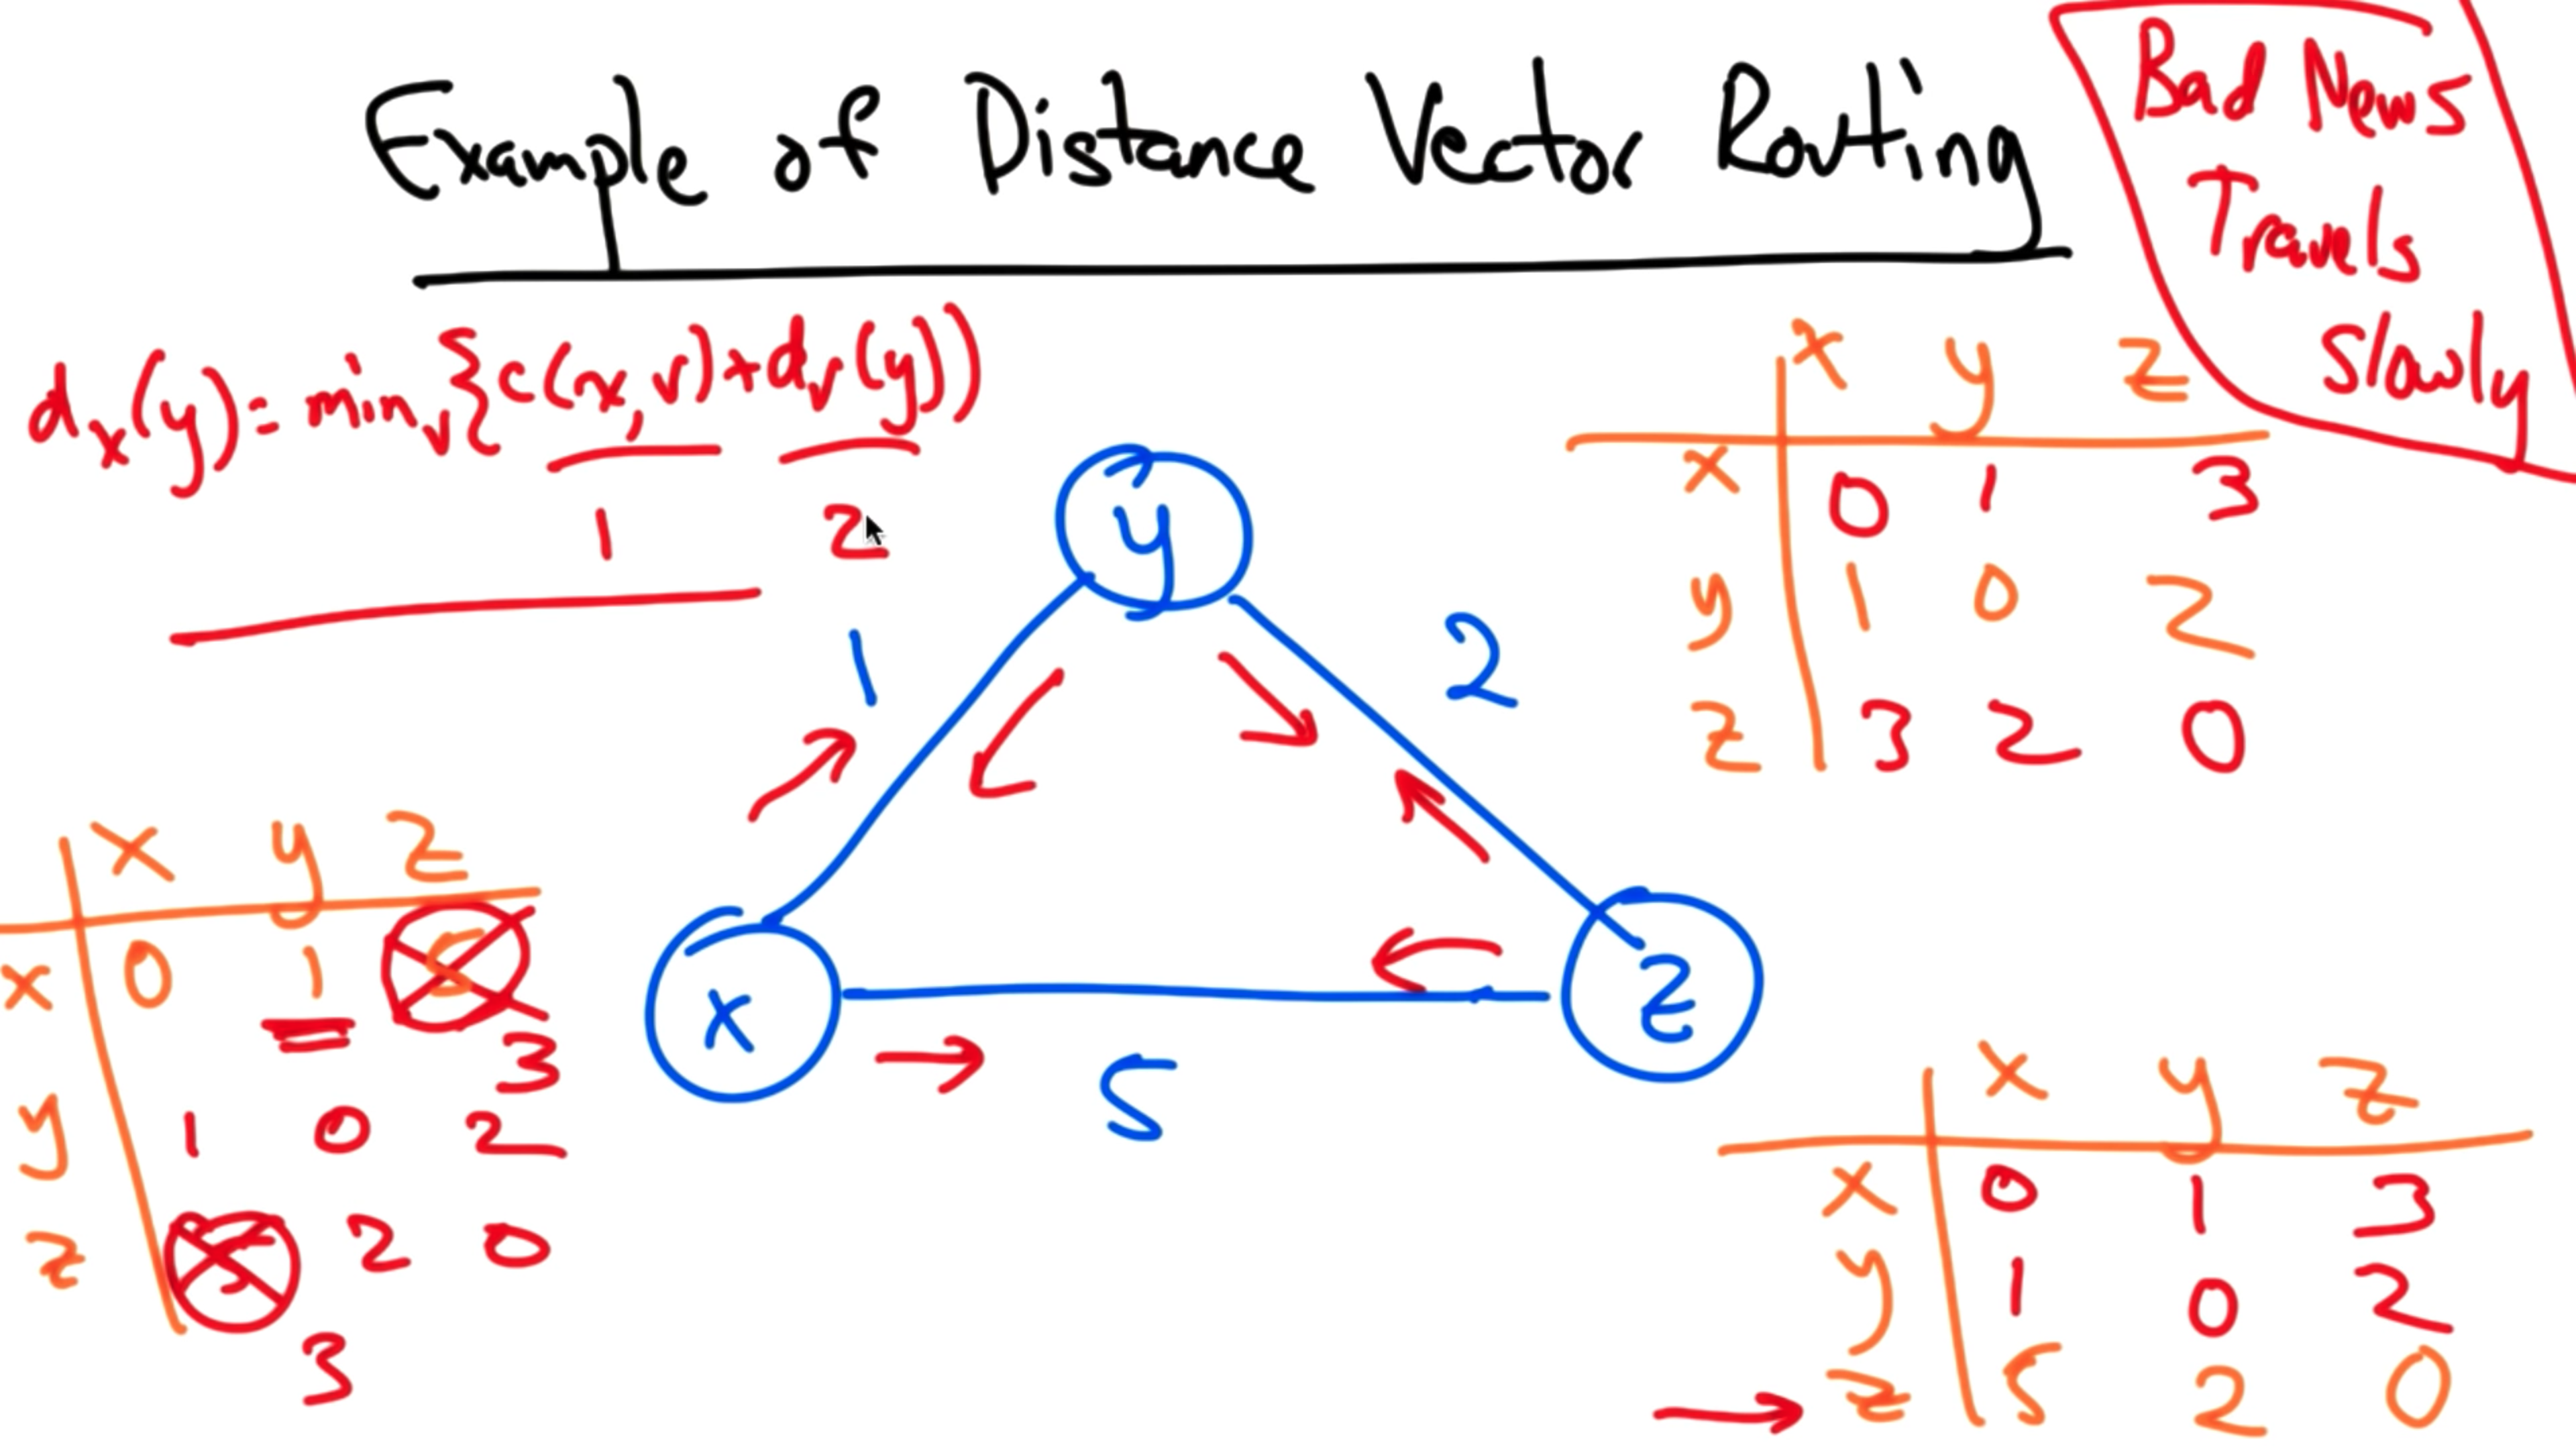 Example of Distance Vector Routing
Bad News
Travels
Slowly
dx(y) = minv{c(x,v)+dv(y))
1 2
x y z
x 0 1 3
y 1 0 2
z 3 2 0
y
1
2
x
z
5
x y z
x 0 1 5
3
y 1 0 2
z 5 2 0
3
x y z
x 0 1 3
y 1 0 2
z 5 2 0